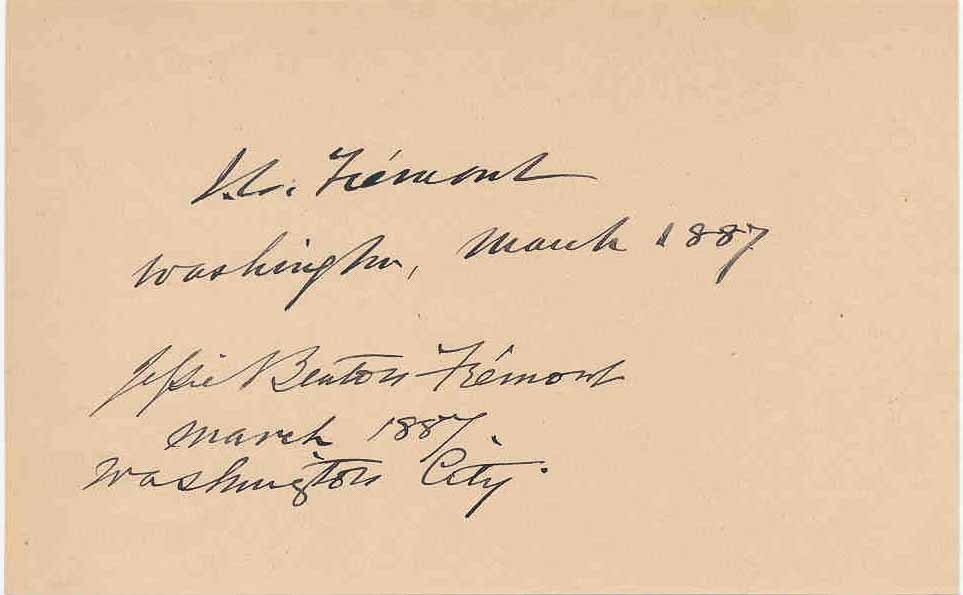 J.C. Frémont
Washington, March 1887
Jessie Benton Frémont
March 1887.
Washington City.